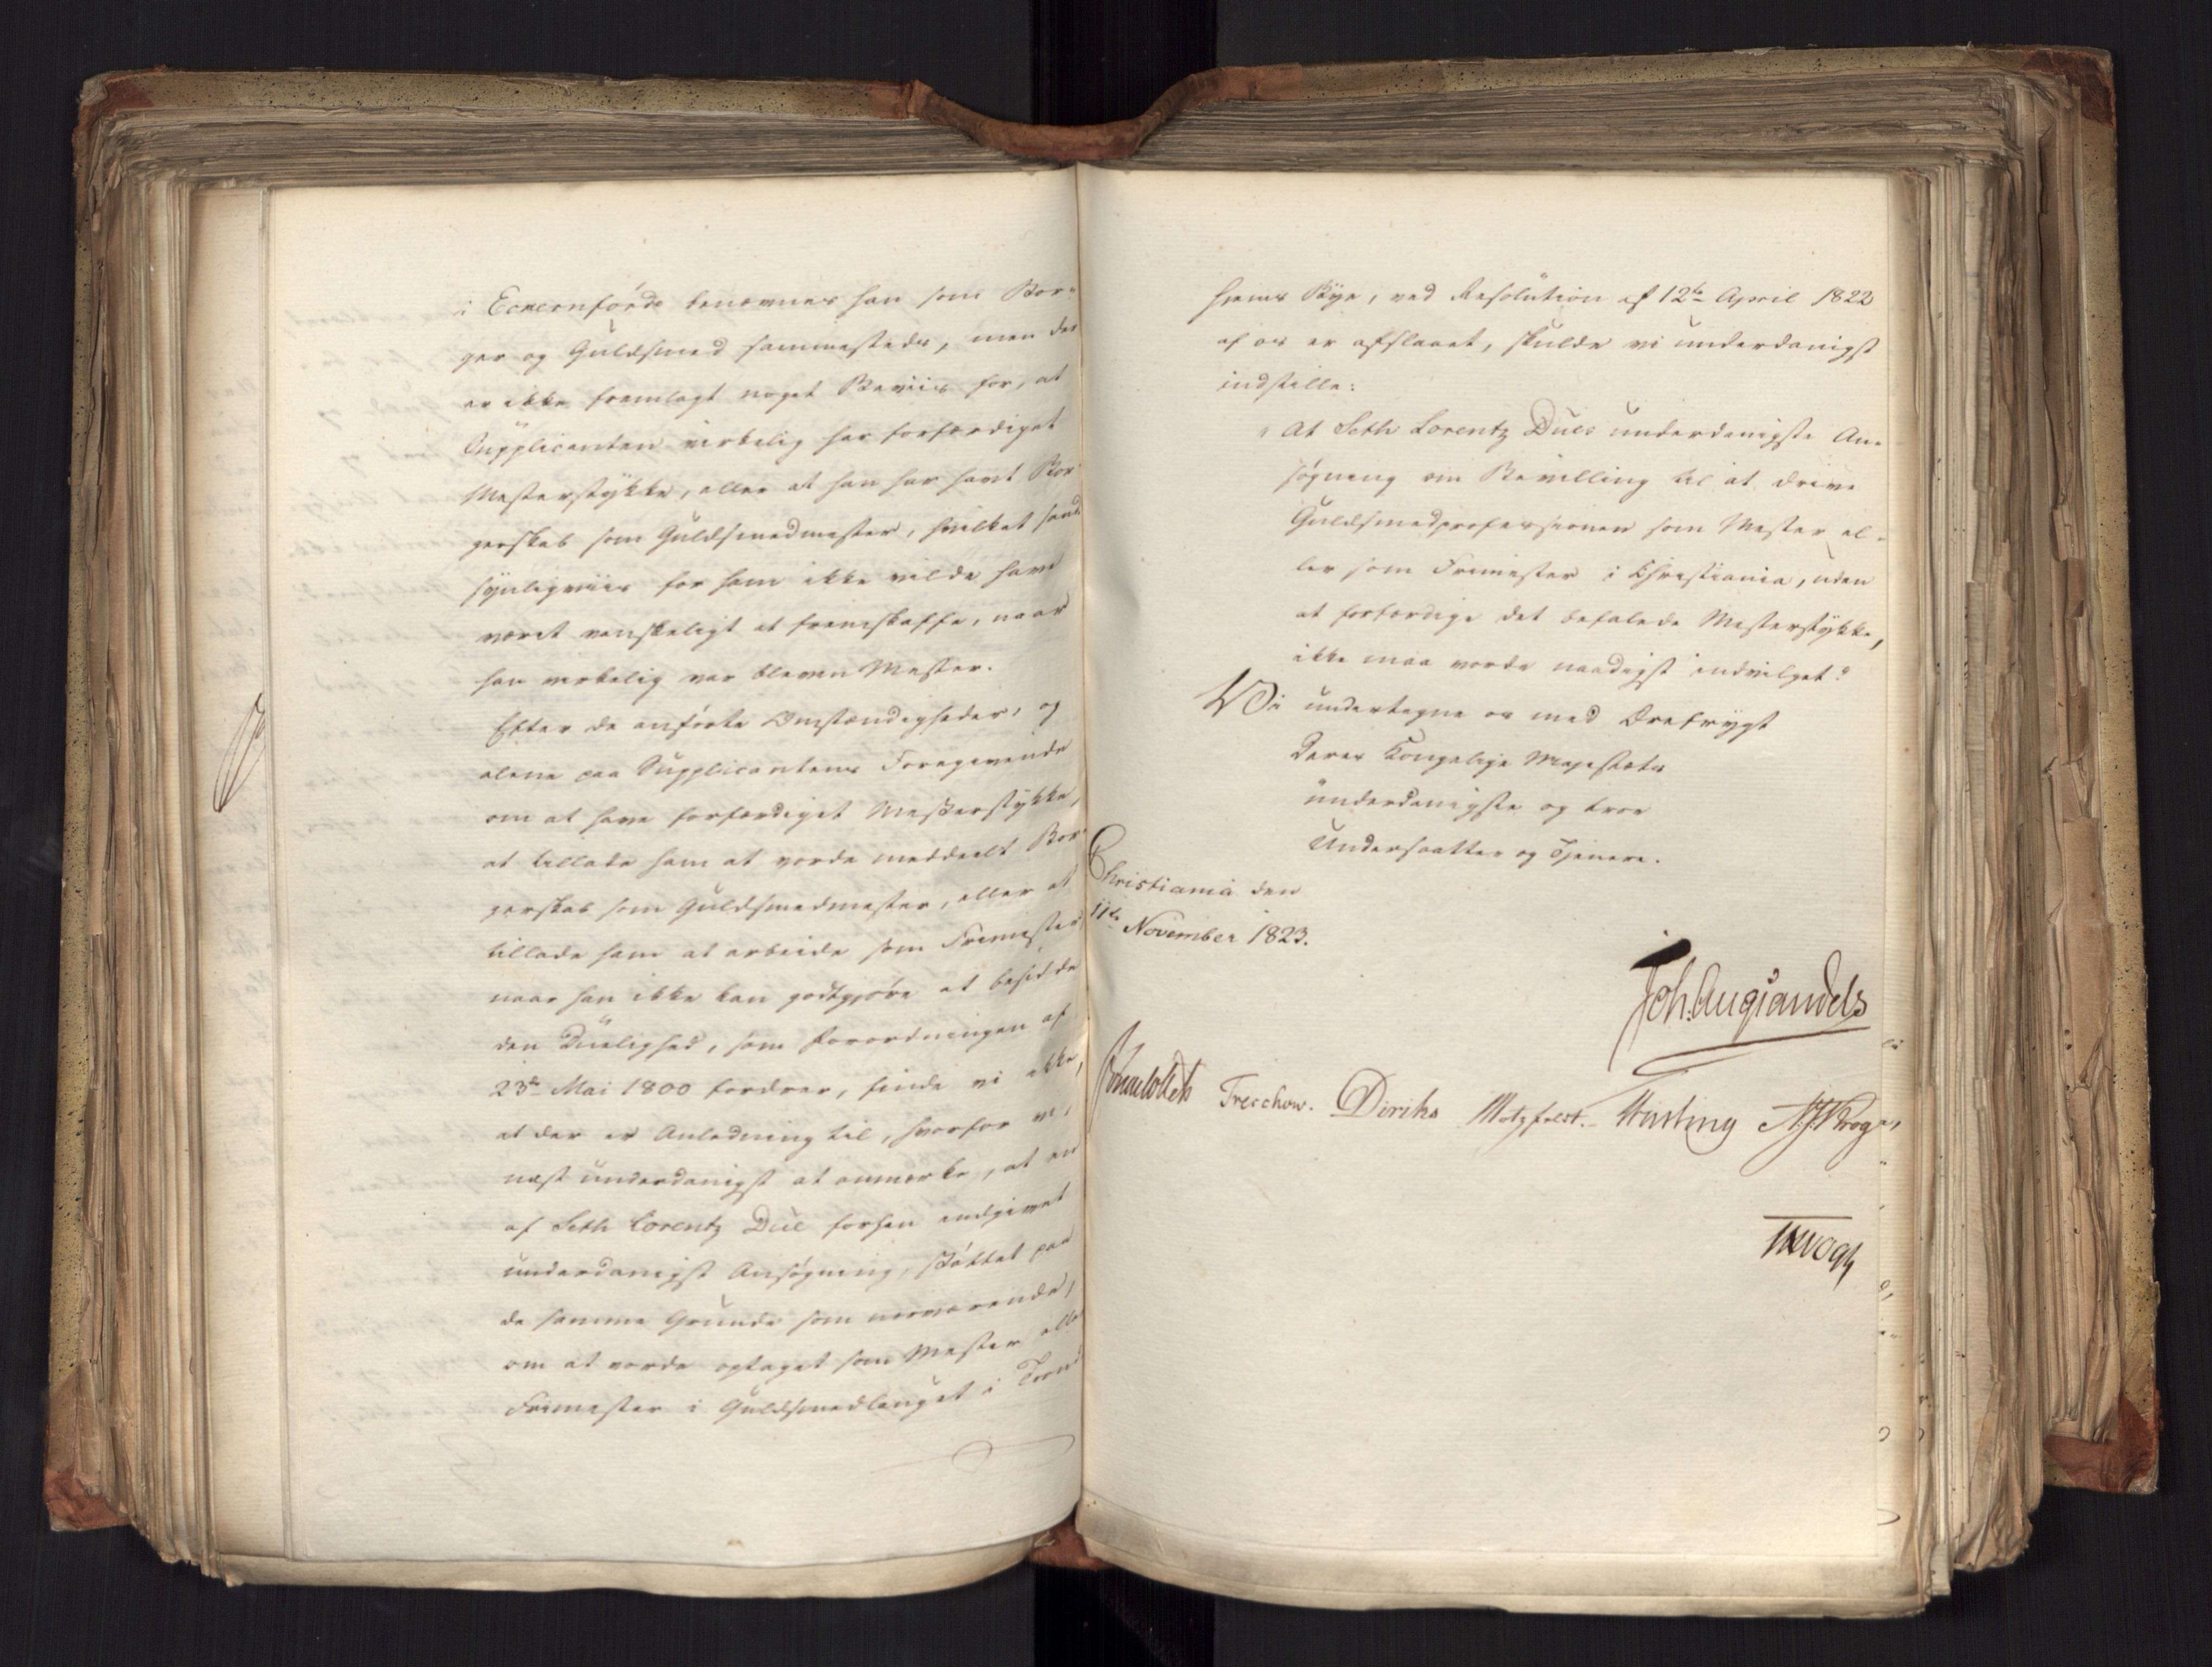 i Ecnernförde benævnes han som Bor-
ger og Guldsmed sammesteds, men der
er ikke fremlagt noget Beviis for, at
Supplicanten virkelig har forfærdiget
Mesterstykke, eller at han har havt Bor-
gerskab som Guldsmedmester, hvilket sand-
synligviis for ham ikke vilde have
været vanskeligt at fremskaffe, naar
han virkelig var bleven Mester.
Efter de anførte Omstændigheder, og
alene paa Supplicantens Foregivende
om at have forfærdiget Mesterstykke,
at tillade ham at vorde meddeelt Bor-
gerskab som Guldsmedmester, eller at
tillade ham at arbeide som Frimester,
naar han ikke kan godtgjøre at besidde
den Duelighed, som Forordningen af
23de Mai 1800 fordrer, finde vi ikke,
at der er Anledning til, hvorfor vi,
næst underdanigst at anmærke, at en
af Seth Lorentz Due forhen indgivet
underdanigst Ansøgning, støttet paa
de samme Grunde som nærværende,
om at vorde optaget som Mester eller
Frimester i Guldsmedlauget i Trond-
hjems Bye, ved Resolution af 12te April 1822
af os er afslaaet, skulde vi underdanigst
indstille:
"At Seth Lorentz Dues underdanigste An-
søgning om Bevilling til at drive
Guldsmedprofessionen som Mester el-
ler som Frimester i Christiania, uden
at forfærdige det befalede Mesterstykke,
ikke maa vorde naadigst indvilget."
Vi undertegne os med Ærefrygt
Deres Kongelige Majestæts
underdanigste og troe
Undersaatter og Tjenere.
Christiania den
11te November 1823.
Joh. Aug. Sandels
Sommerfeldt Treschow. Diriks Motzfeldt. Fasting N. J. Krog
Vogt